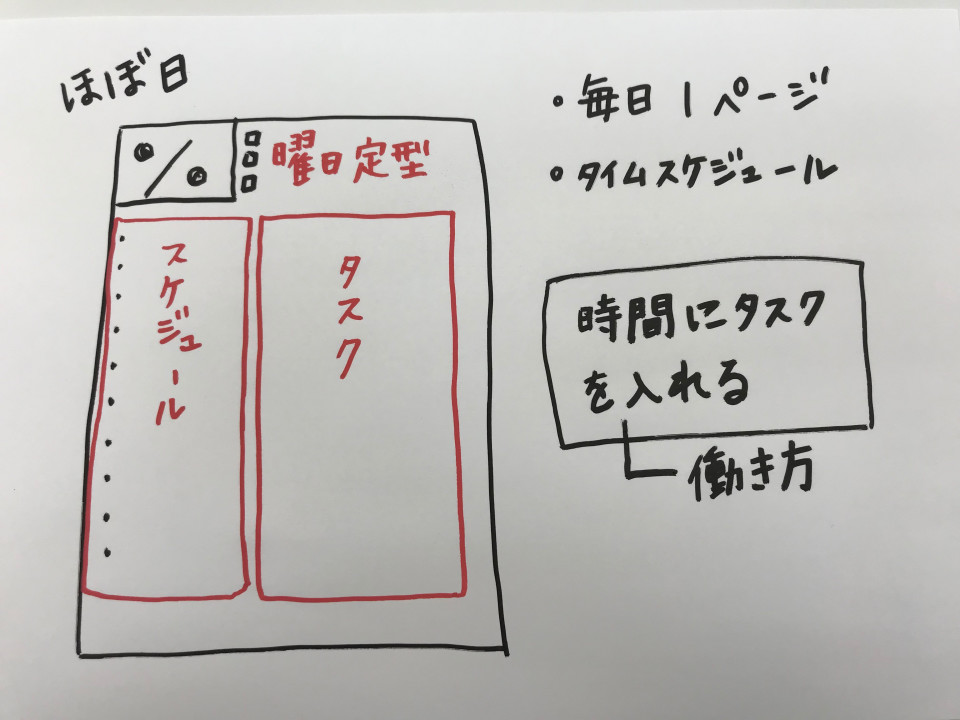 ほぼ日
●/●
曜日定型
スケジュール
タスク
・毎日1ページ
・タイムスケジュール
時間にタスク
を入れる
働き方